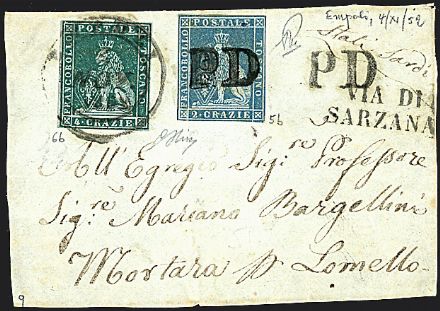 Empoli, 4/XI/52
Stati Sardi
FRANCOBOLLO POSTALE TOSCANO
4. CRAZIE
FRANCOBOLLO POSTALE TOSCANO
2. CRAZIE
PD
PD
VIA DI
SARZANA
6b
5b
All'Egregio Sig.re Professore
Sig.re Mariano Bargellini
Mortara p Lomello
9